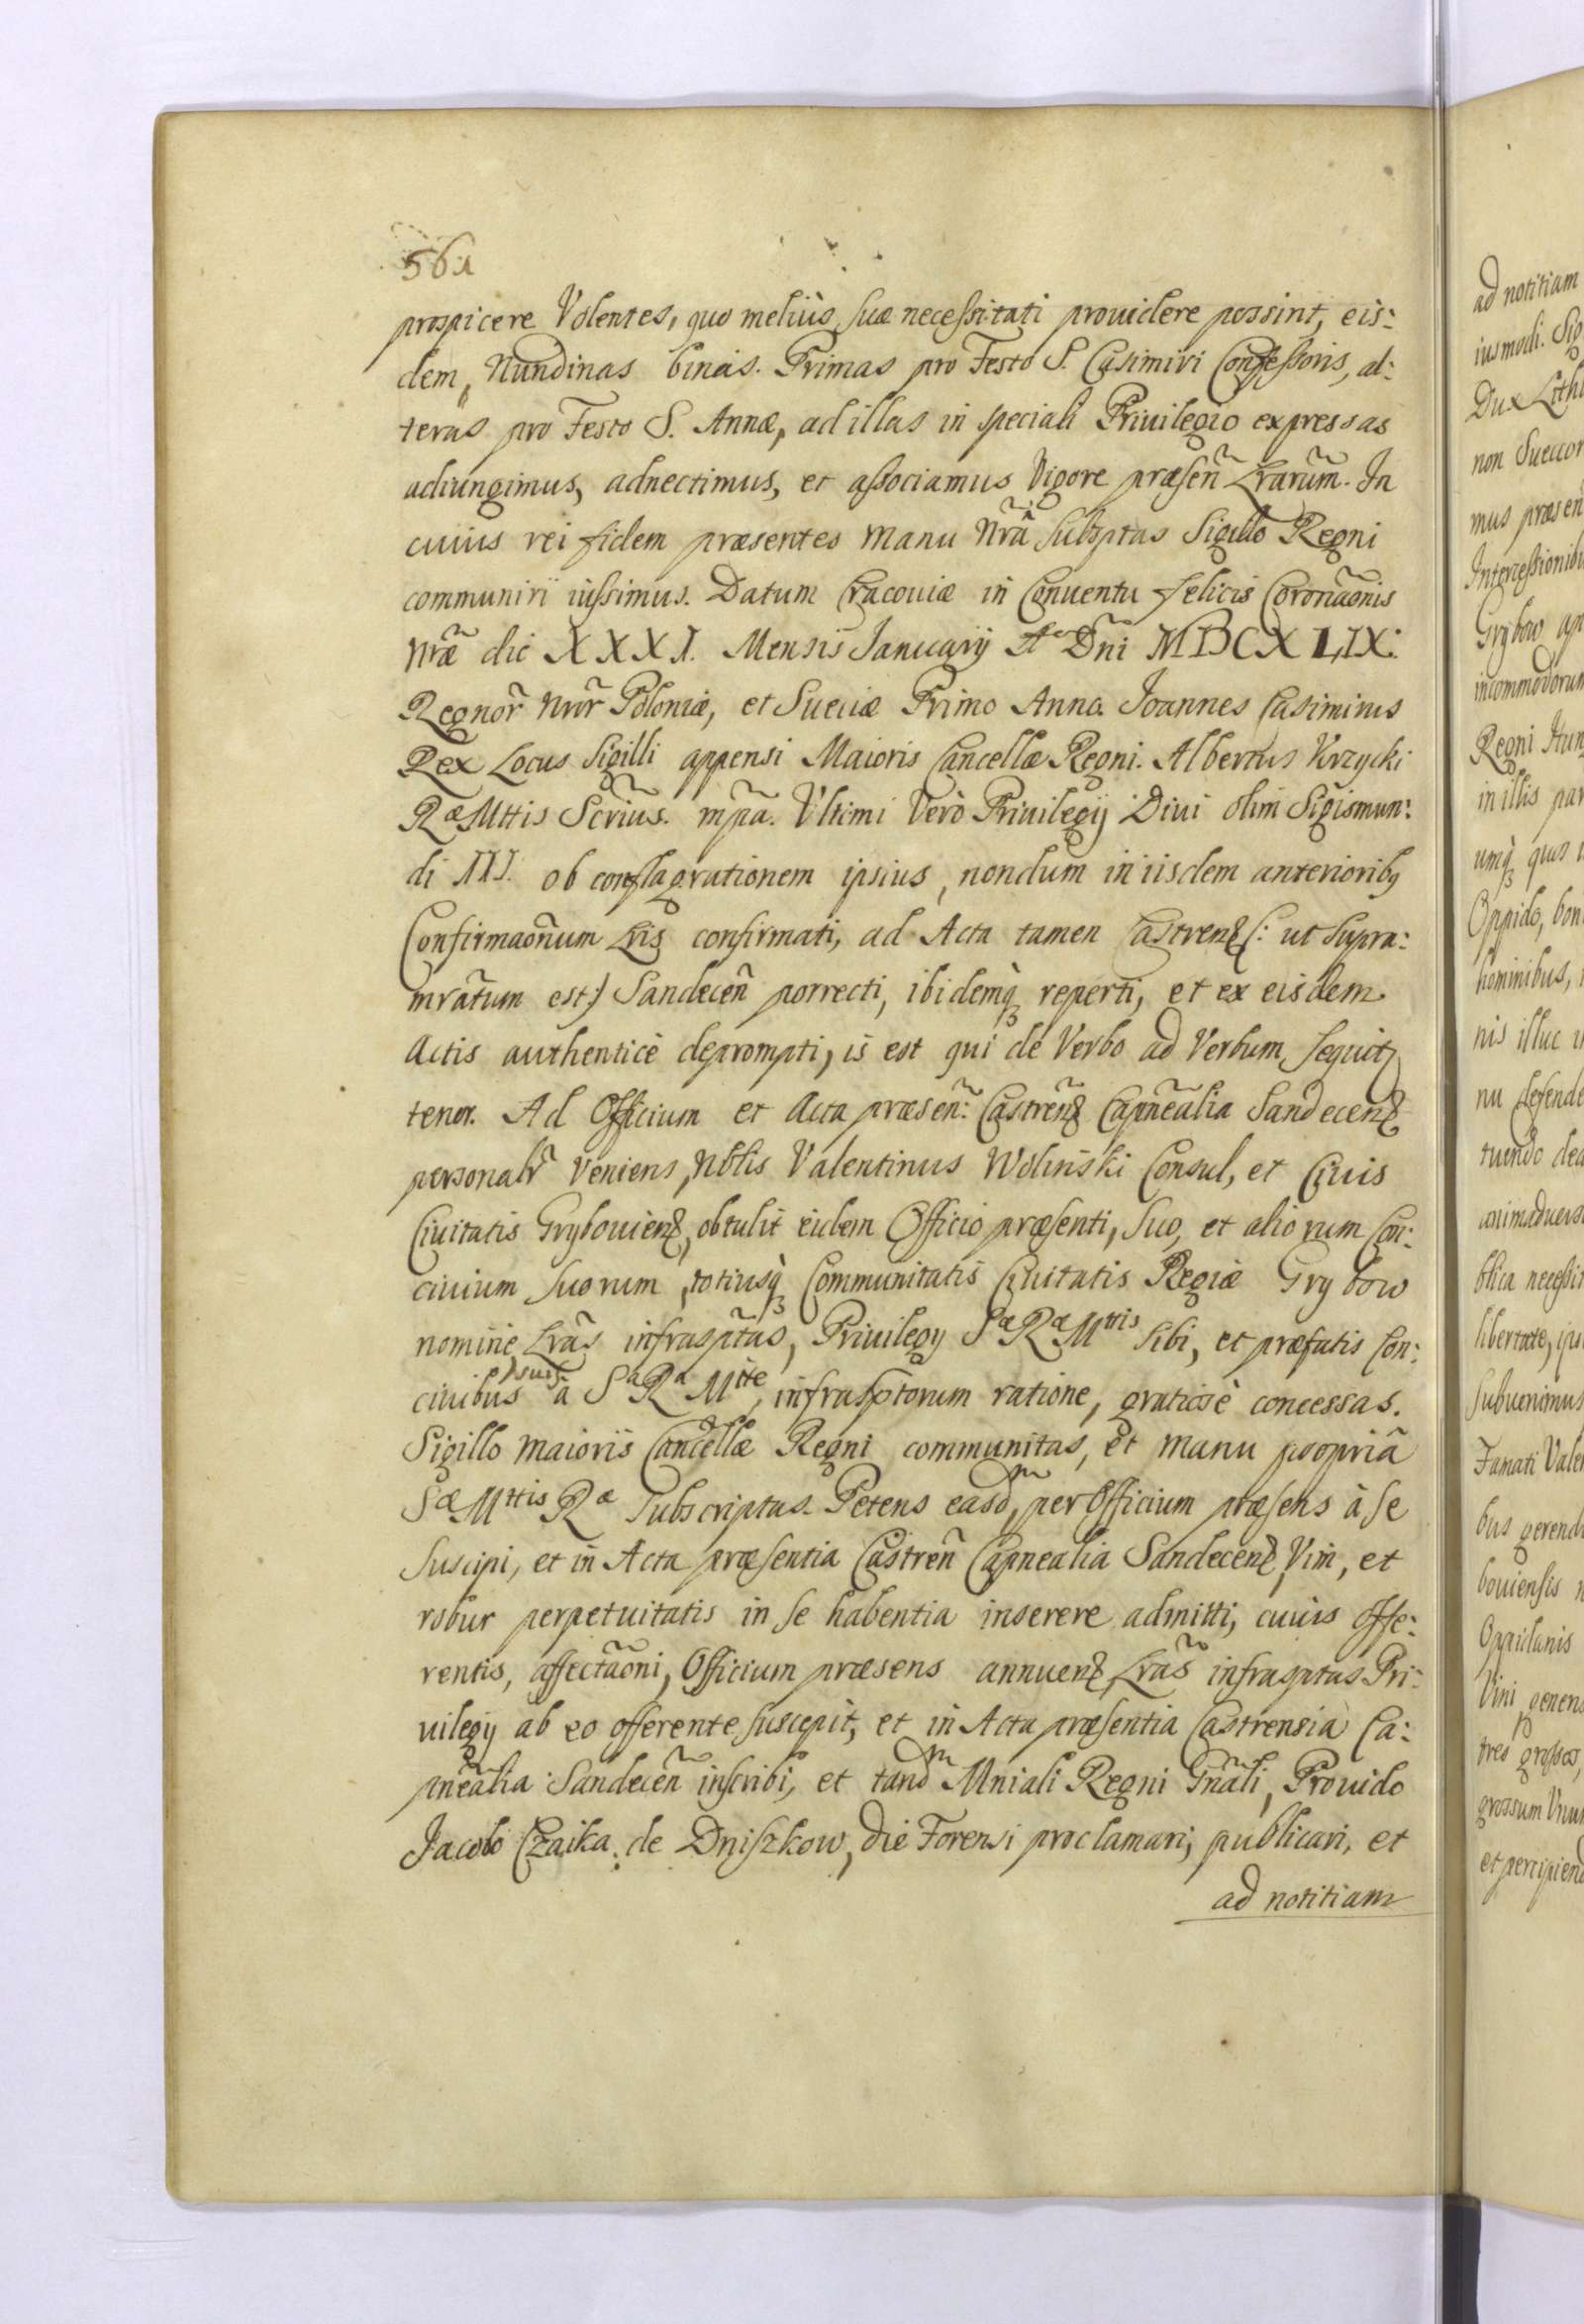 561
prospicere Volentes, quo meliùs suæ necessitati prouidere possint, eis:
dem, Nundinas binas. Primas pro Festo S. Casimiri Confessoris, al:
teras pro Festo S. Annæ, ad illas in speciali Priuilegio expressas
adiungimus, adnectimus, et associamus Vigore præsen̄ Lrarum̄. In
cuius rei fidem præsentes manu Nrâ subsptas Sigillo Regni
communiri iussimus. Datum Cracouiæ in Conuentu felicis Coronãonis
Nræ die XXXI. Mensis Januarij Aº Dn̄i MDCXLIX:
Regnor̃ Nror̃ Poloniæ, et Sueciæ Primo Anno. Joannes Casimirus
Rex Locus Sigilli appensi Maioris Cancellæ Regni. Albertus Krzycki
Ræ Mttis Scrius. mpa. Vltimi Verò Priuilegij Diui olim Sigismun:
di III. ob conflagrationem ipsius, nondum in iisdem anterioribꝫ
Confirmaõnum Lris confirmati, ad Acta tamen Castrenꝫ (: ut supra:
mrãtum est:) Sandecen̄ porrecti, ibidemq̀ꝫ reperti, et ex eisdem
Actis authenticè deprompti, is est qui de Verbo ad Verbum sequitꝫ
tenor. Ad Officium et Acta præsen̄: Castren̄ꝫ Capn̄ealia Sandecenꝫ
personalr̃ Veniens, Nblis Valentinus Woliński Consul, et Ciuis
Ciuitatis Grybouienꝫ, obtulit eidem Officio præsenti, suo, et aliorum Con:
ciuium suorum, totiusq̀ꝫ Communitatis Ciuitatis Regiæ Grybow
nomine Lrãs infrasp̃tas, Priuilegij Sæ Ræ Mttis sibi, et præfatis Con:
ciuibus suis à Sa Ra Mtte, infrasptorum ratione, gratiosè concessas.
Sigillo maioris Cancellæ Regni communitas, et manu propriâ
Sæ Mttis Ræ subscriptas. Petens easdm, per Officium præsens à se
suscipi, et in Acta præsentia Castren̄ Capnealia Sandecenꝫ, Vim, et
robur perpetuitatis in se habentia inserere admitti, cuius offe:
rentis, affectãoni, Officium præsens annuenꝫ, Lrãs infrasptas Pri:
uilegij ab eo offerente suscepit, et in Acta præsentia Castrensia Ca:
pn̄ealia Sandecen̄ inscribi, et tandm Mniali Regni Gn̄ali, Prouido
Jacobo Czaika de Dniszkow, die Forensi proclamari, publicari, et
ad notitiam